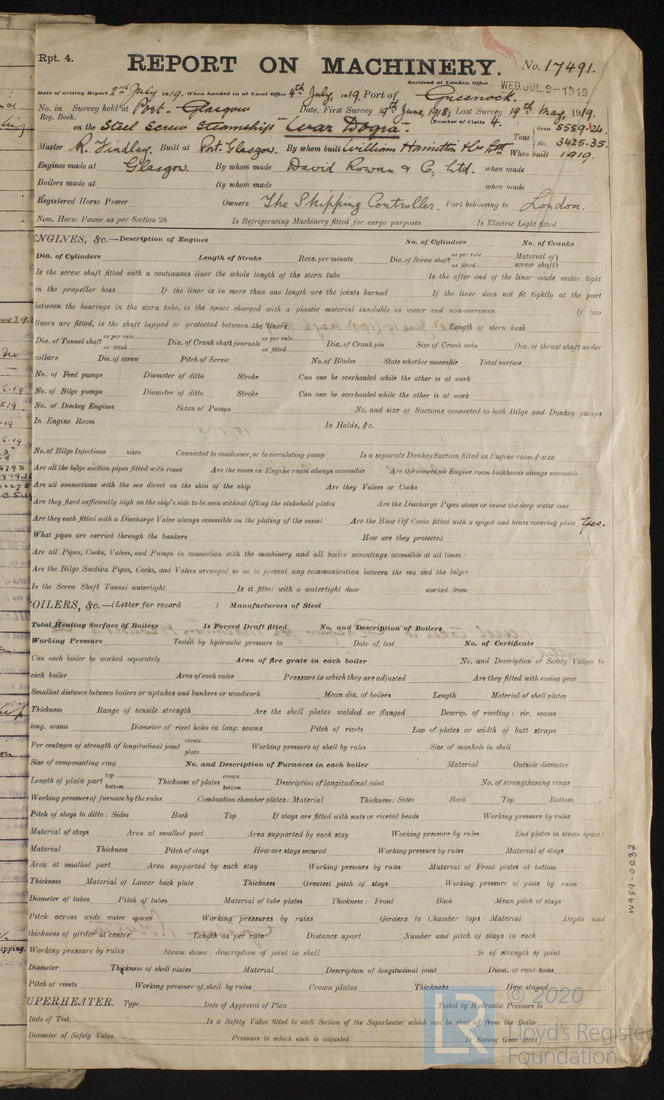 Rpt. 4.
REPORT ON MACHINERY.
No. 17491.
Received at London Office WED. JUL. 9 - 1919
Date of writing Report 2nd July 1919. When handed in at Local Office 4th July, 1919. Port of Greenock.
No. in Survey held at Port-Glasgow Date, First Survey 19th June, 1918, Last Survey 19th May, 1919.
Reg. Book. Number of Visits 4.
on the Steel Screw Steamship "War Dogra". Tons { Gross 5559.24. Net 3425.35.
Master R. Findlay. Built at Port-Glasgow. By whom built William Hamilton & Co. Ltd. When built 1919.
Engines made at Glasgow. By whom made David Rowan & Co. Ltd. when made
Boilers made at By whom made when made
Registered Horse Power Owners The Shipping Controller. Port belonging to London.
Nom. Horse Power as per Section 28 Is Refrigerating Machinery fitted for cargo purposes Is Electric Light fitted
ENGINES, &c.—Description of Engines No. of Cylinders No. of Cranks
Dia. of Cylinders Length of Stroke Revs. per minute Dia. of Screw shaft as per rule as fitted Material of screw shaft
Is the screw shaft fitted with a continuous liner the whole length of the stern tube Is the after end of the liner made water tight
in the propeller boss If the liner is in more than one length are the joints burned If the liner does not fit tightly at the part
between the bearings in the stern tube, is the space charged with a plastic material insoluble in water and non-corrosive If two
liners are fitted, is the shaft lapped or protected between the liners Length of stern bush
Dia. of Tunnel shaft as per rule as fitted Dia. of Crank shaft journals as per rule as fitted Dia. of Crank pin Size of Crank webs Dia. of thrust shaft under
collars Dia. of screw Pitch of Screw No. of Blades State whether moveable Total surface
No. of Feed pumps Diameter of ditto Stroke Can one be overhauled while the other is at work
No. of Bilge pumps Diameter of ditto Stroke Can one be overhauled while the other is at work
No. of Donkey Engines Sizes of Pumps No. and size of Suctions connected to both Bilge and Donkey pumps
In Engine Room In Holds, &c.
No. of Bilge Injections sizes Connected to condenser, or to circulating pump Is a separate Donkey Suction fitted in Engine room & size
Are all the bilge suction pipes fitted with roses Are the roses in Engine room always accessible Are the sluices on Engine room bulkheads always accessible
Are all connections with the sea direct on the skin of the ship Are they Valves or Cocks
Are they fixed sufficiently high on the ship's side to be seen without lifting the stokehold plates Are the Discharge Pipes above or below the deep water line
Are they each fitted with a Discharge Valve always accessible on the plating of the vessel Are the Blow Off Cocks fitted with a spigot and brass covering plate Yes.
What pipes are carried through the bunkers How are they protected
Are all Pipes, Cocks, Valves, and Pumps in connection with the machinery and all boiler mountings accessible at all times
Are the Bilge Suction Pipes, Cocks, and Valves arranged so as to prevent any communication between the sea and the bilges
Is the Screw Shaft Tunnel watertight Is it fitted with a watertight door worked from
OILERS, &c.—(Letter for record ) Manufacturers of Steel
Total Heating Surface of Boilers Is Forced Draft fitted No. and Description of Boilers
Working Pressure Tested by hydraulic pressure to Date of test No. of Certificate
Can each boiler be worked separately Area of fire grate in each boiler No. and Description of Safety Valves to
each boiler Area of each valve Pressure to which they are adjusted Are they fitted with easing gear
Smallest distance between boilers or uptakes and bunkers or woodwork Mean dia. of boilers Length Material of shell plates
Thickness Range of tensile strength Are the shell plates welded or flanged Descrip. of riveting: cir. seams
long. seams Diameter of rivet holes in long. seams Pitch of rivets Lap of plates or width of butt straps
Per centages of strength of longitudinal joint rivets plate Working pressure of shell by rules Size of manhole in shell
Size of compensating ring No. and Description of Furnaces in each boiler Material Outside diameter
Length of plain part top bottom Thickness of plates crown bottom Description of longitudinal joint No. of strengthening rings
Working pressure of furnace by the rules Combustion chamber plates: Material Thickness: Sides Back Top Bottom
Pitch of stays to ditto: Sides Back Top If stays are fitted with nuts or riveted heads Working pressure by rules
Material of stays Area at smallest part Area supported by each stay Working pressure by rules End plates in steam space:
Material Thickness Pitch of stays How are stays secured Working pressure by rules Material of stays
Area at smallest part Area supported by each stay Working pressure by rules Material of Front plates at bottom
Thickness Material of Lower back plate Thickness Greatest pitch of stays Working pressure of plate by rules
Diameter of tubes Pitch of tubes Material of tube plates Thickness: Front Back Mean pitch of stays
Pitch across wide water spaces Working pressures by rules Girders to Chamber tops: Material Depth and
thickness of girder at centre Length as per rule Distance apart Number and pitch of stays in each
Working pressure by rules Steam dome: description of joint to shell % of strength of joint
Diameter Thickness of shell plates Material Description of longitudinal joint Diam. of rivet holes
Pitch of rivets Working pressure of shell by rules Crown plates Thickness How stayed
UPERHEATER. Type Date of Approval of Plan Tested by Hydraulic Pressure to
Date of Test Is a Safety Valve fitted to each Section of the Superheater which can be shut off from the Boiler
Diameter of Safety Valve Pressure to which each is adjusted Is Easing Gear fitted
W989-0037
© 2020
Lloyd's Register
Foundation